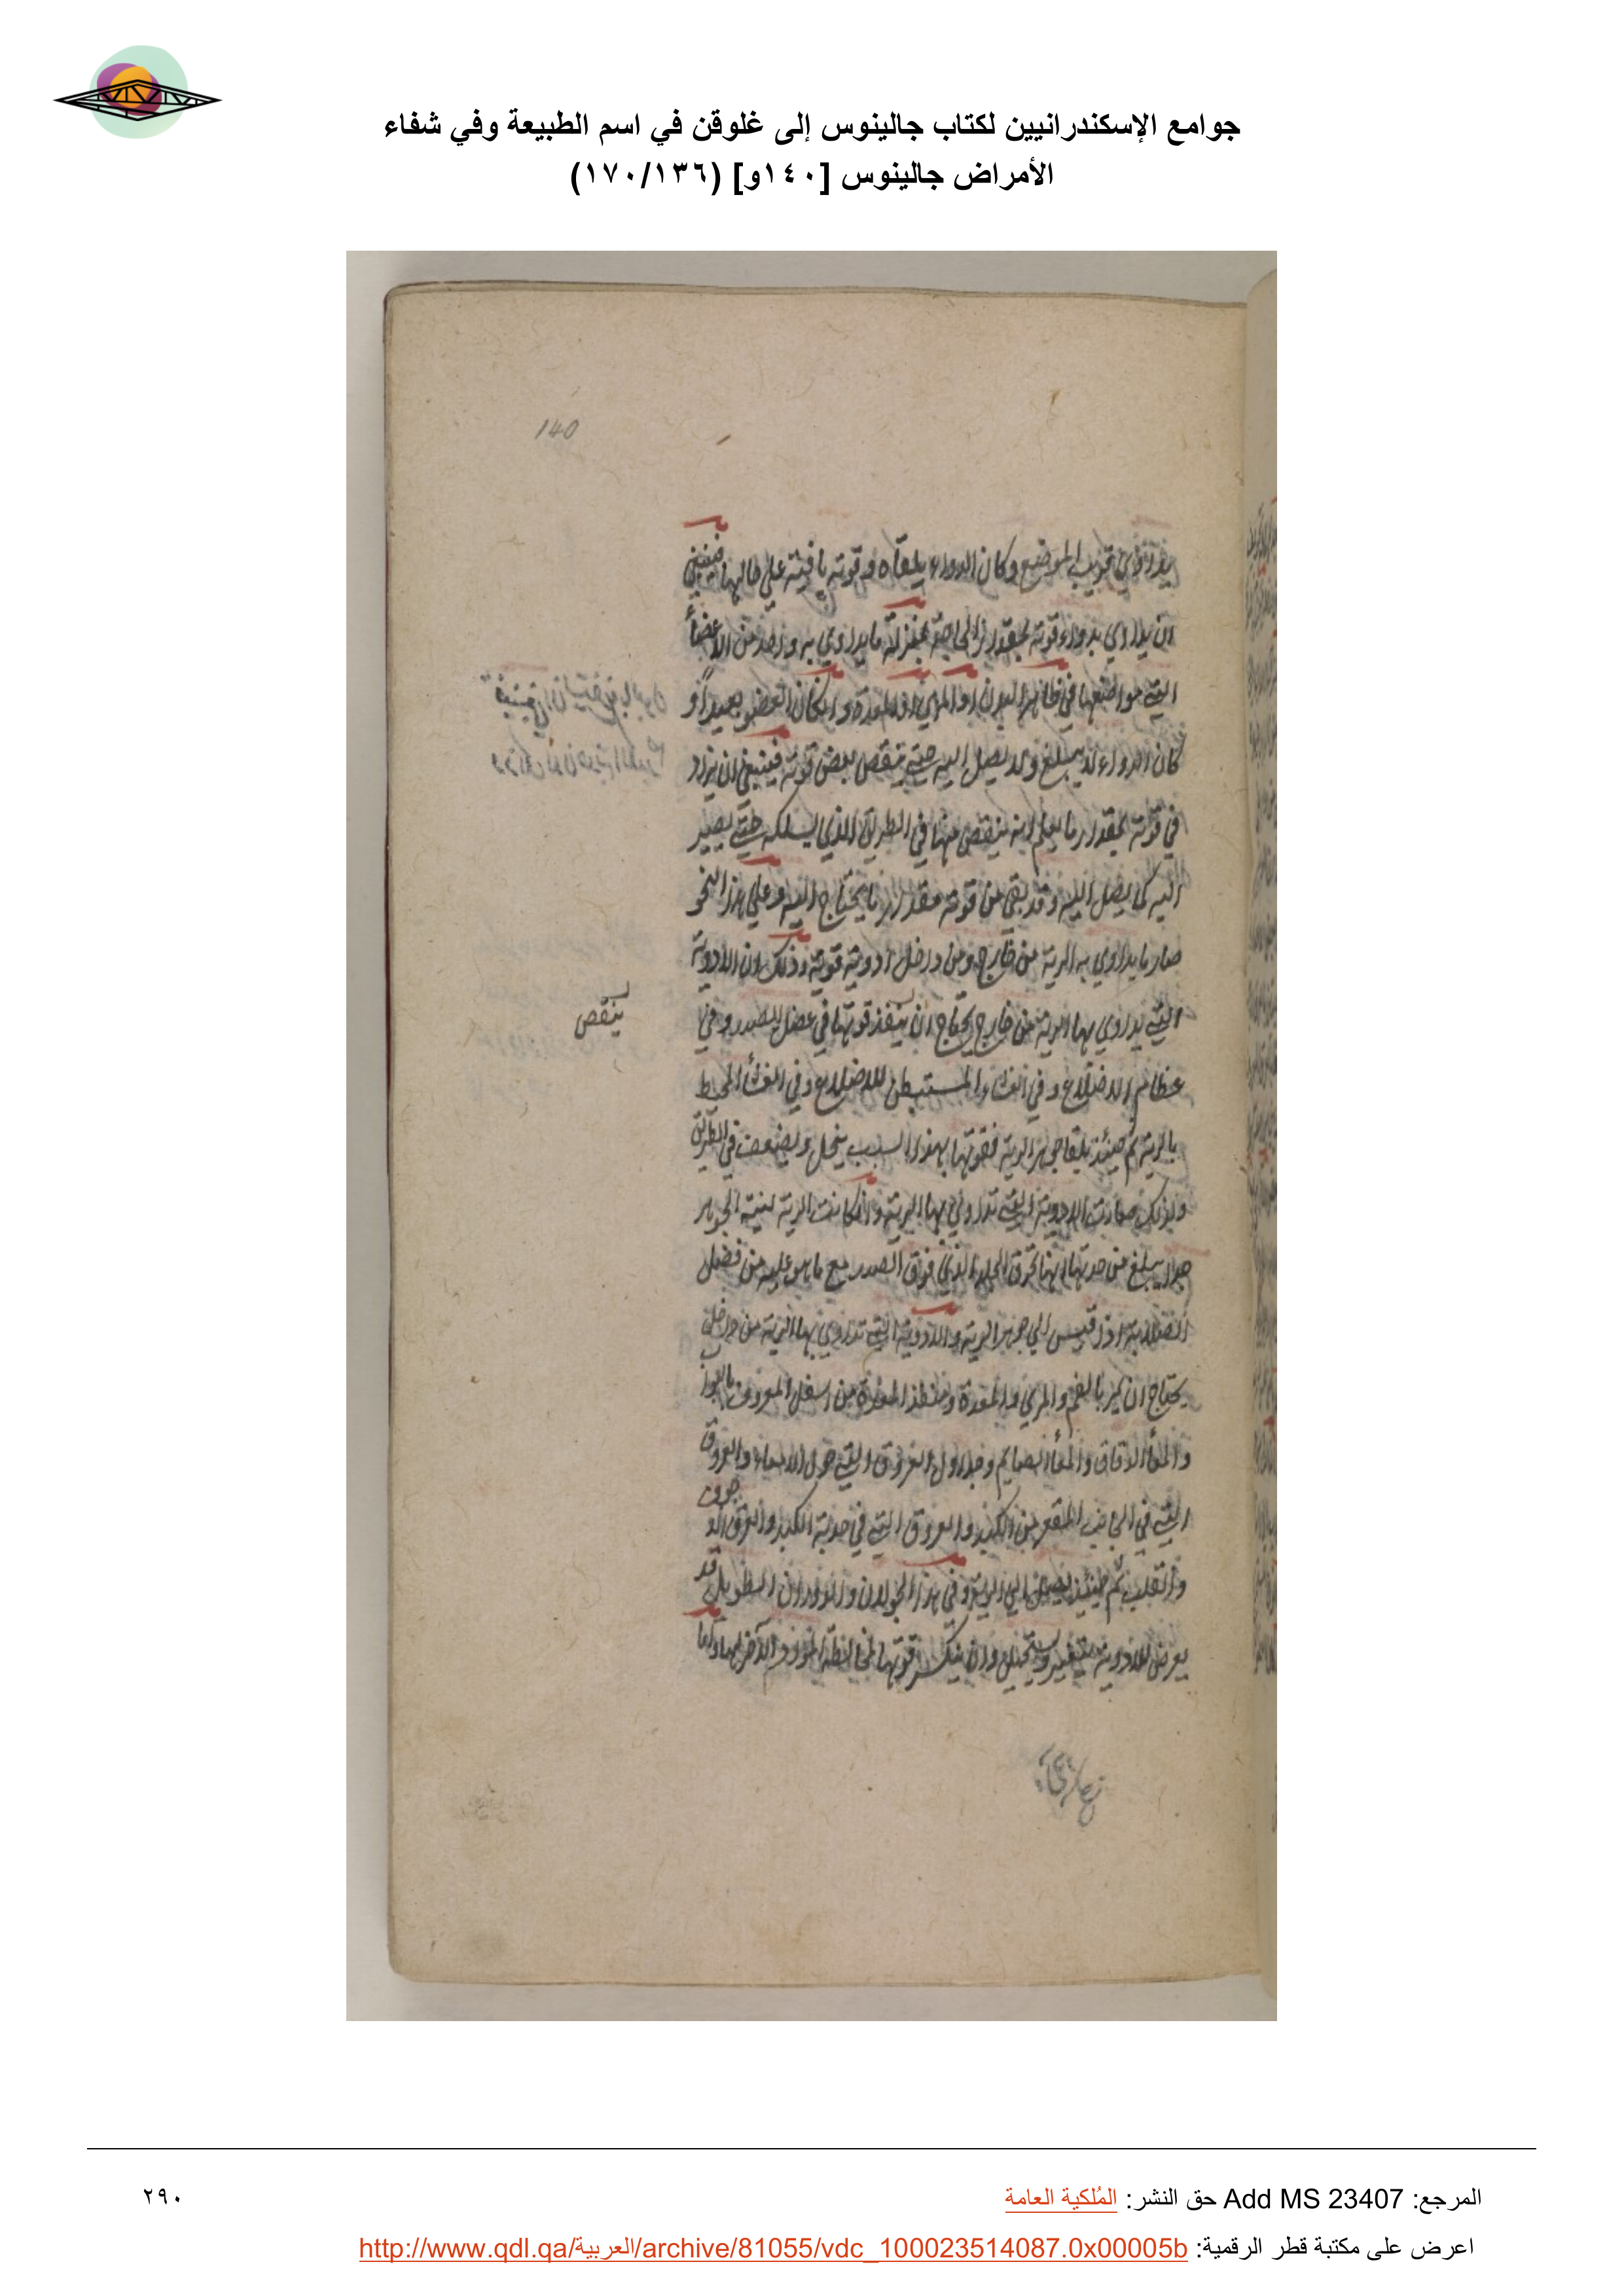 جوامع الإسكندرانيين لكتاب جالينوس إلى غلوقن في اسم الطبيعة وفي شفاء
الأمراض جالينوس [١٤٠و] (١٧٠/١٣٦)
140
قريب الموضع وكان الدواء يلقاه وقوته باقية على حالها فينبغي
ان يداوي بدواء قوته بمقدار الحاجة بمنزلة ما يداوي به واحد من الاعضأ
التي مواضعها في ظاهر البدن او المري او المعدة وان كان العضو بعيداً و
كان الدواء لا يبلغ ولا يصل اليه حتي ينقص بعض قوته فينبغي ان يزاد
في قوته بمقدار ما يعلم انه ينقص منها في الطريق الذي يسلكه حتي يصير
اليه كى يصل اليه وقد بقي من قوته مقدار ما يحتاج اليه وعلي هذا النحو
صار ما يداوي به الرية من خارج ومن داخل ادوية قوية وذلك ان الادوية
التي يداوي بها الرية من خارج يحتاج ان ينفذ قوتها في عضل الصدر وفي
ينقص
عظام الاضلاع وفي الغشاء المستبطن للاضلاع وفي الغشأ المحيط
بالرية ثم حينئذ يلقا جوهر الرية فقوتها بهذا السبب ينحل ويضعف في الطريق
ولذلك صارت الادوية التي تداوي بها الرية وان كانت الرية لينة الجوهر
جدا يبلغ من حدتها انها تخرق الجلد الذي فوق الصدر مع ما هو عليه من فضل
الصلابة اذا قيس الي جوهر الرية والادوية التي تداوي بها الرية من داخل
يحتاج ان يمر بالفم والمري والمعدة ومنفذ المعدة من اسفل المعروف بالبواب
والمعأ الدقاق والمعأ الصايم وجداول العروق التي حول الامعاء والعروق
التي في الجانب المقعر من الكبد والعروق التي في حدبة الكبد والعرق الاجوف
والقلب ثم حينئذ يصل الي الرية وفي هذا الجولان والدوران الطويل قد
يعرض للادوية ويستحيل وان ينكسر قوتها لمخالطة
المرجع: Add MS 23407 حق النشر: المُلكية العامة
٢٩٠
اعرض على مكتبة قطر الرقمية: http://www.qdl.qa/العربية/archive/81055/vdc_100023514087.0x00005b